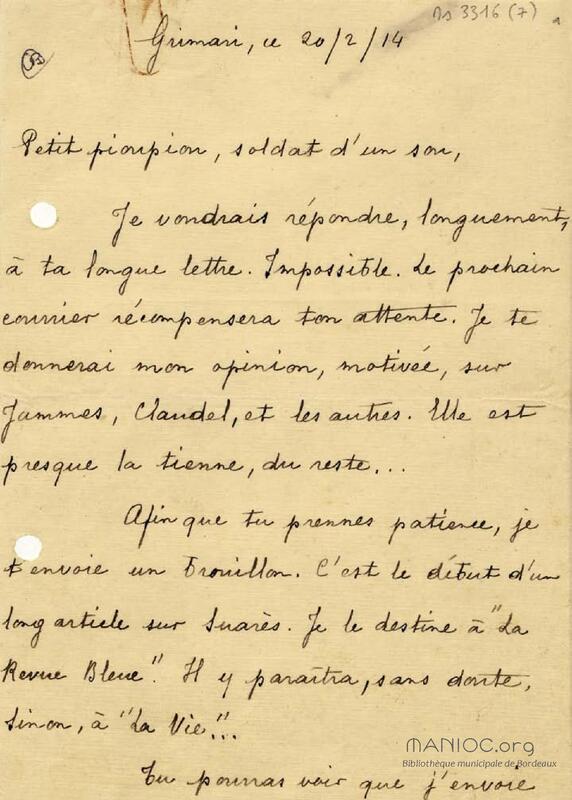 Ms 3316 (7)
Grimari, ce 20/2/14
Petit pioupiou, soldat d'un sou,
Je voudrais répondre, longuement,
à ta longue lettre. Impossible. Le prochain
courrier récompensera ton attente. Je te
donnerai mon opinion, motivée, sur
Jammes, Claudel, et les autres. Elle est
presque la tienne, du reste...
Afin que tu prennes patience, je
t'envoie un brouillon. C'est le début d'un
long article sur Suarès. Je le destine à "La
Revue Bleue". Il y paraîtra, sans doute,
sinon, à "La Vie"...
Tu pourras voir que j'envoie
MANIOC.org
Bibliothèque municipale de Bordeaux